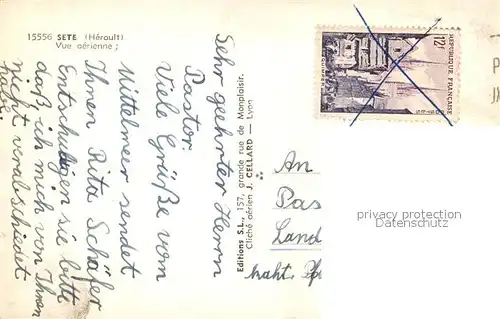 15556 SETE (Hérault)
Vue aérienne ;
Sehr gehrter Herrn
Pastor.
Viele Grüße vom
Mittelmeer sendet
Ihnen Rita Schäfer
Entschuldigen sie bitte
daß ich mich von Ihnen
nicht verabschiedet
habe.
Editions S.L., 157, grande rue de Monplaisir.
Cliché aérien J. CELLARD — Lyon
12f
REPUBLIQUE FRANÇAISE
POSTES
An
Pas
Land
privacy protection
Datenschutz